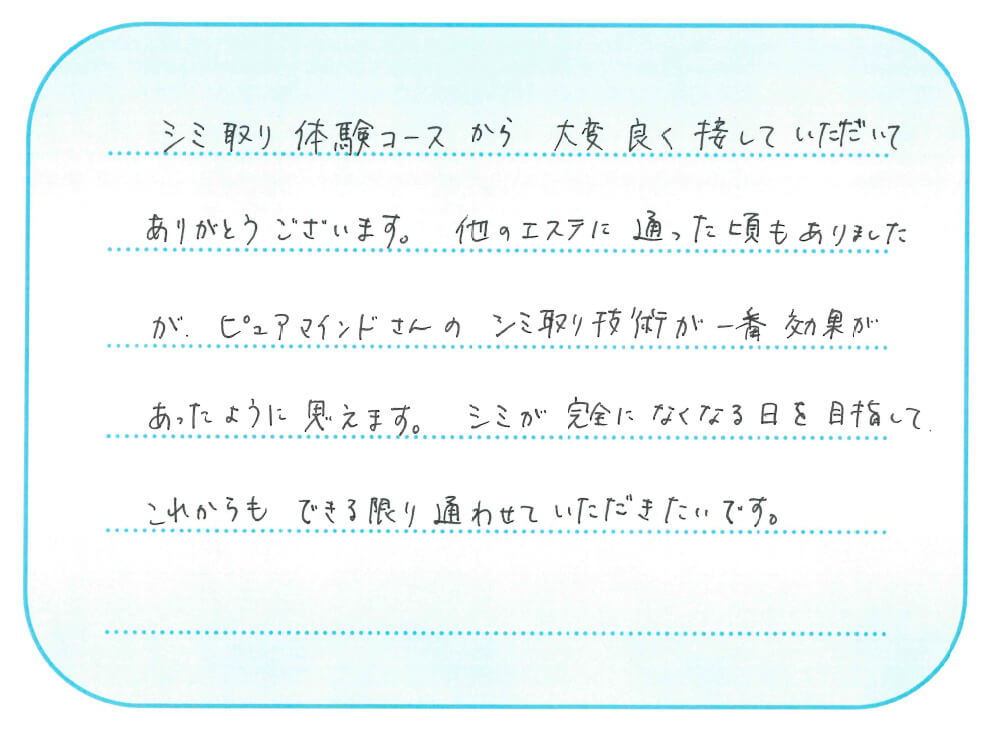 シミ取り体験コースから 大変良く接していただいて
ありがとうございます。 他のエステに通った頃もありました
が、ピュアマインドさんの シミ取り技術が一番効果が
あったように思えます。 シミが完全になくなる日を目指して、
これからも できる限り通わせていただきたいです。